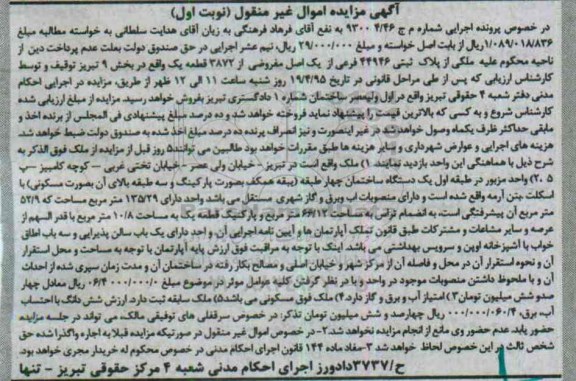 آگهی مزایده اموال غیر منقول (نوبت اول)
در خصوص پرونده اجرایی شماره م ج ۴/۴۶ ۹۳۰۰ به نفع آقای فرهاد فرهنگی به زیان آقای هدایت سلطانی به خواسته مطالبه مبلغ
۱/۰۸۹/۰۱۸/۸۳۶ ریال از بابت اصل خواسته و مبلغ ۲۹/۰۰۰/۰۰۰ ریال، نیم عشر اجرایی در حق صندوق دولت بعلت عدم پرداخت دین از
ناحیه محکوم علیه ملکی از پلاک ثبتی ۴۴۹۴۶ فرعی از یک اصل مفروضی از ۳۸۷۲ قطعه یک واقع در بخش ۹ تبریز توقیف و توسط
کارشناس ارزیابی که پس از طی مراحل قانونی در تاریخ ۱۹/۴/۹۵ روز شنبه ساعت ۱۱ الی ۱۲ ظهر از طریق، مزایده در اجرای احکام
مدنی دفتر شعبه ۴ حقوقی تبریز واقع در ساختمان شماره ۱ دادگستری تبریز بفروش خواهد رسید. مزایده از مبلغ ارزیابی شده
کارشناس شروع و به کسی که بالاترین قیمت را پیشنهاد نماید فروخته خواهد شد و ده درصد مبلغ پیشنهادی فی المجلس از برنده اخذ و
مابقی حداکثر ظرف یکماه وصول خواهد شد در غیر اینصورت و نیز انصراف برنده ده درصد مبلغ اخذ شده به صندوق دولت ضبط خواهد شد.
هزینه های اجرایی و عوارض شهرداری و سایر هزینه ها طبق مقررات خواهد بود طالبین می توانند ۵ روز قبل از مزایده از ملک فوق الذکر به
شرح ذیل با هماهنگی این واحد بازدید نمایند. ۱) ملک واقع در تبریز – خیابان ولی عصر – خیابان تختی غربی – کوچه کامبیز –پ
۵ .۲) واحد مزبور در طبقه اول یک دستگاه ساختمان چهار طبقه (یبقه همکف بصورت پارکینگ و سه طبقه بالای آن بصورت مسکونی) با
اسکلت بتن آرمه واقع شده است و دارای منصوبات آب وبرق و گاز شهری مستقل می باشد واحد دارای ۱۳۵/۲۹ متر مربع مساحت که ۵۲/۹
متر مربع آن پیشرفتگی است، به انضمام تراس به مساحت ۶۶/۱۲ متر مربع و پارکینگ قطعه یک به مساحت ۱۰/۸ متر مربع با قدر السهم از
عرصه و سایر مشاعات و مشترکات طبق قانون تملک آپارتمان ها و آیین نامه اجرایی آن و واجد دارای یک باب سالن پذیرایی و سه باب اطاق
خواب با آشپزخانه اوپن و سرویس بهداشتی می باشد. اینک با توجه به مراقبت فوق ارزش پایه آپارتمان با توجه به مساحت و محل استقرار
آن و نحوه استقرار آن در محل و فاصله آن از مرکز شهر و خیابان اصلی و مصالح بکار رفته در ساختمان آن و مدت زمان سپری شده از احداث
آن و با ملحوظ داشتن منصوبات موجود در واحد و با در نظر گرفتن کلیه عوامل موثر در موضوع مبلغ ۰۶/۴ ۰۰۰/۰۰۰/۰ ریال معادل چهار
صدو شش میلیون تومان ۳) امتیاز آب و برق و گاز دارد ۴) ملک فوق مسکونی می باشد ۵) ملک سابقه ثبت دارد. ارزش شش دانگ با احتساب
آب، برق، ۰۰۰/۰۰۰/۰۶۰/۴ ریال چهارصد و شش میلیون تومان تذکر: در خصوص سرقفلی های توقیفی مالک، می تواند در جلسه مزایده
حضور یابد. عدم حضور وی مانع از انجام مزایده نخواهد شد. ۲- در خصوص اموال غیر منقول در صورتیکه مزایده قبلا به اجاره واگذار شده حق
شخص ثالث در این خصوص لحاظ خواهد شد ۳-مفاد ماده ۱۴۴ قانون اجرای احکام مدنی در خصوص محکوم له خریدار مجری خواهد بود.
ح/۳۷۳۷ دادورز اجرای احکام مدنی شعبه ۴ مرکز حقوقی تبریز – تنها